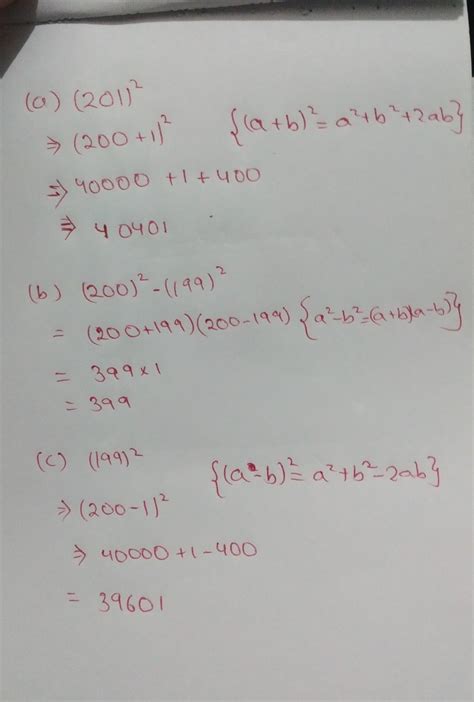 (a) (201)²
⇒ (200+1)² {(a+b)² = a²+b²+2ab}
⇒ 40000 +1+400
⇒ 40401
(b) (200)² - (199)²
= (200+199)(200-199) {a²-b²=(a+b)(a-b)}
= 399×1
= 399
(c) (199)²
{(a-b)² = a²+b²-2ab}
⇒ (200-1)²
⇒ 40000+1-400
= 39601